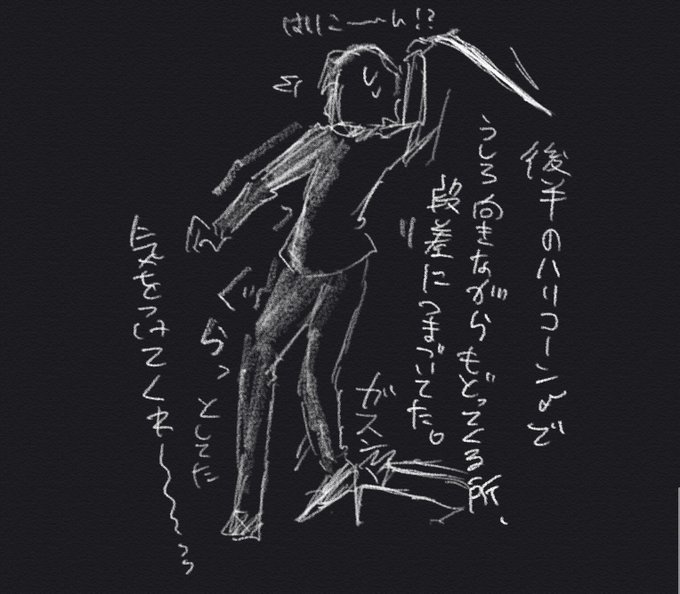 はりこーん!?
後半のハリコーン♪で
うしろ向きながらもどってくる所、
段差につまづいてた。
ガスッ
ぐらっ
としてた
気をつけてくれ〜〜〜